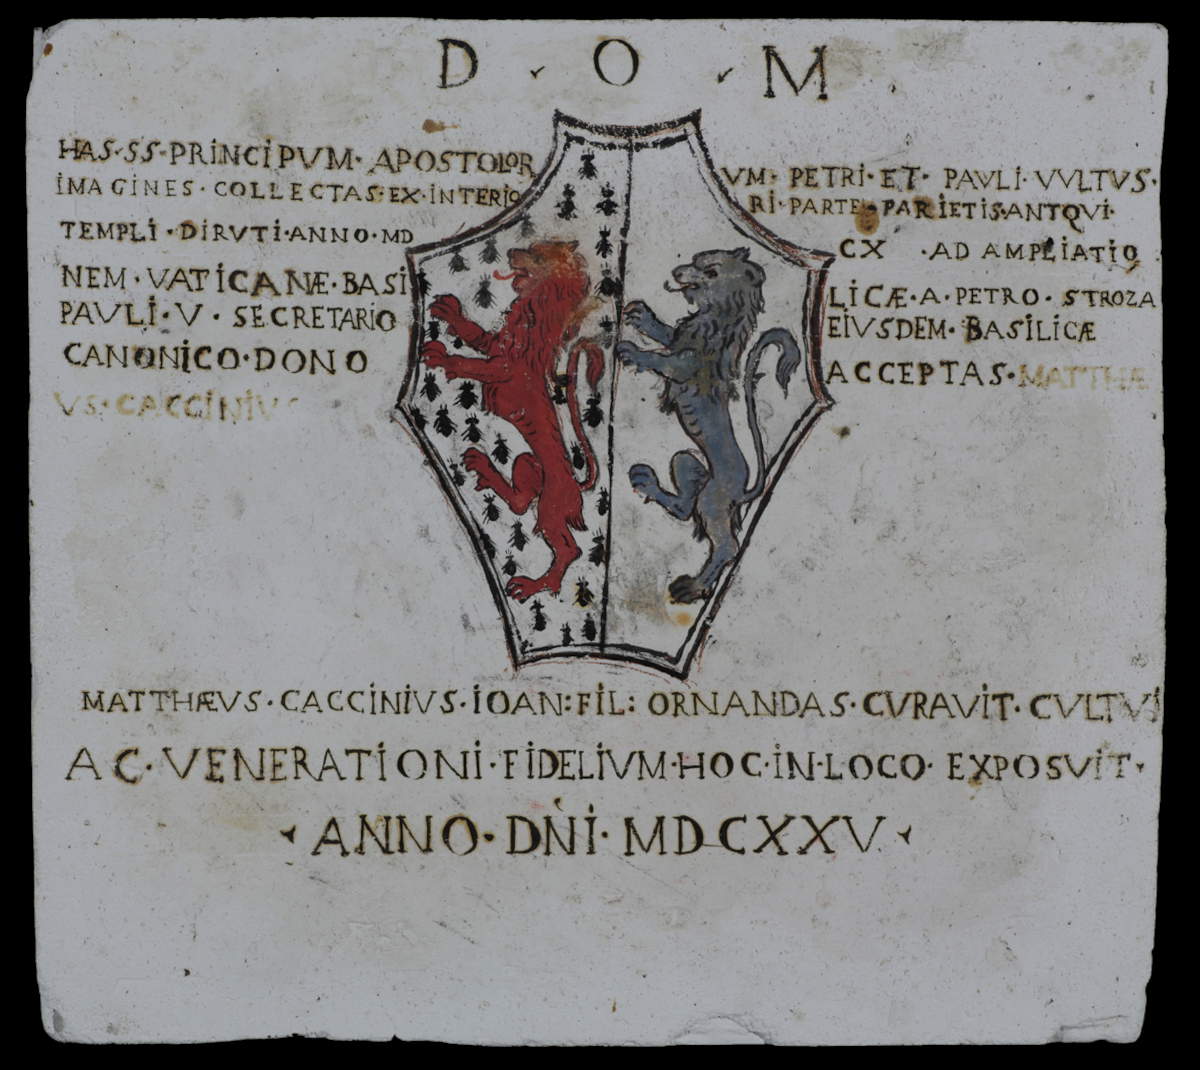 D · O · M
HAS·SS·PRINCIPVM·APOSTOLORVM·PETRI·ET·PAVLI·VVLTVS·
IMAGINES·COLLECTAS·EX·INTERIORI·PARTE·PARIETIS·ANTQVI·
TEMPLI·DIRVTI·ANNO·MDCX·AD AMPLIATIO
NEM·VATICANÆ·BASILICÆ·A·PETRO·STROZA
PAVLI·V·SECRETARIO EIVSDEM·BASILICÆ
CANONICO·DONO ACCEPTAS·MATTHÆ
VS·CACCINIVS
MATTHÆVS·CACCINIVS·IOAN:FIL:ORNANDAS·CVRAVIT·CVLTVI
AC·VENERATIONI·FIDELIVM·HOC·IN·LOCO·EXPOSVIT·
ANNO·DNI·MDCXXV